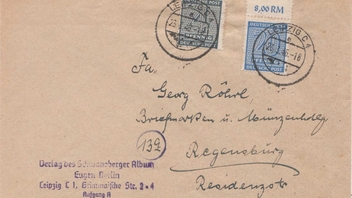 8,00 RM
LEIPZIG C 4
LEIPZIG C 4
Fa.
Georg Röhrl
Briefmarken u. Münzenhdlg
Regensburg
Residenzstr
13a
Verlag des Schwaneberger Album
Eugen Berlin
Leipzig C 1, Grimmaische Str. 2-4
Aufgang A